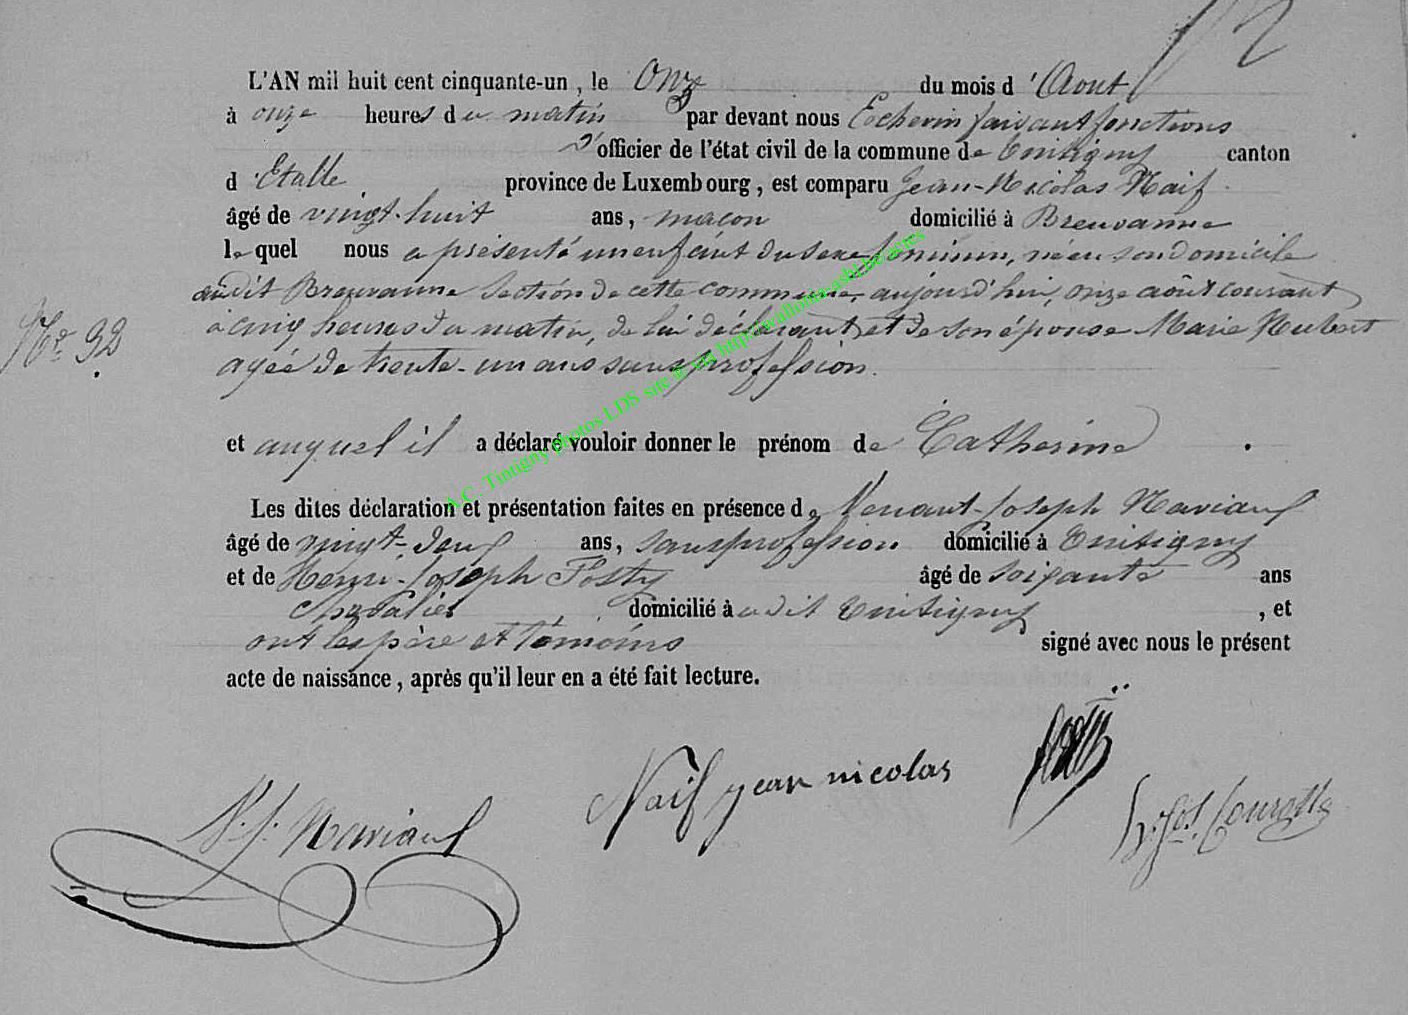 L'AN mil huit cent cinquante-un, le Onze du mois d'Aout
à onze heures du matin par devant nous Echevin faisant fonctions
d'officier de l'état civil de la commune de Tintigny canton
d'Etalle province de Luxembourg, est comparu Jean-Nicolas Naif
âgé de vingt-huit ans, macon domicilié à Breuvanne
lequel nous a présenté un enfant du sexe féminin, né en son domicile
audit Breuvanne section de cette commune, aujourd'hui, onze août courant
à cinq heures du matin, de lui déclarant et de son épouse Marie Hubert
agée de trente-un ans sans profession.
N° 92
et auquel il a déclaré vouloir donner le prénom de Catherine.
Les dites déclaration et présentation faites en présence de Venant-Joseph
âgé de vingt-deux ans, sans profession domicilié à Tintigny
et de Henri-Joseph Posty âgé de soixante ans
domicilié audit Tintigny, et
ont les père et témoins signé avec nous le présent
acte de naissance, après qu'il leur en a été fait lecture.
Naif jean nicolas
A.C. Tintigny photos LDS site &